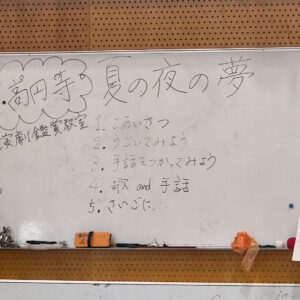 高円寺
夏の夜の夢
演劇鑑賞教室
1. ごあいさつ
2. うごいてみよう
3. 手話をつかってみよう
4. 歌 and 手話
5. さいごに...